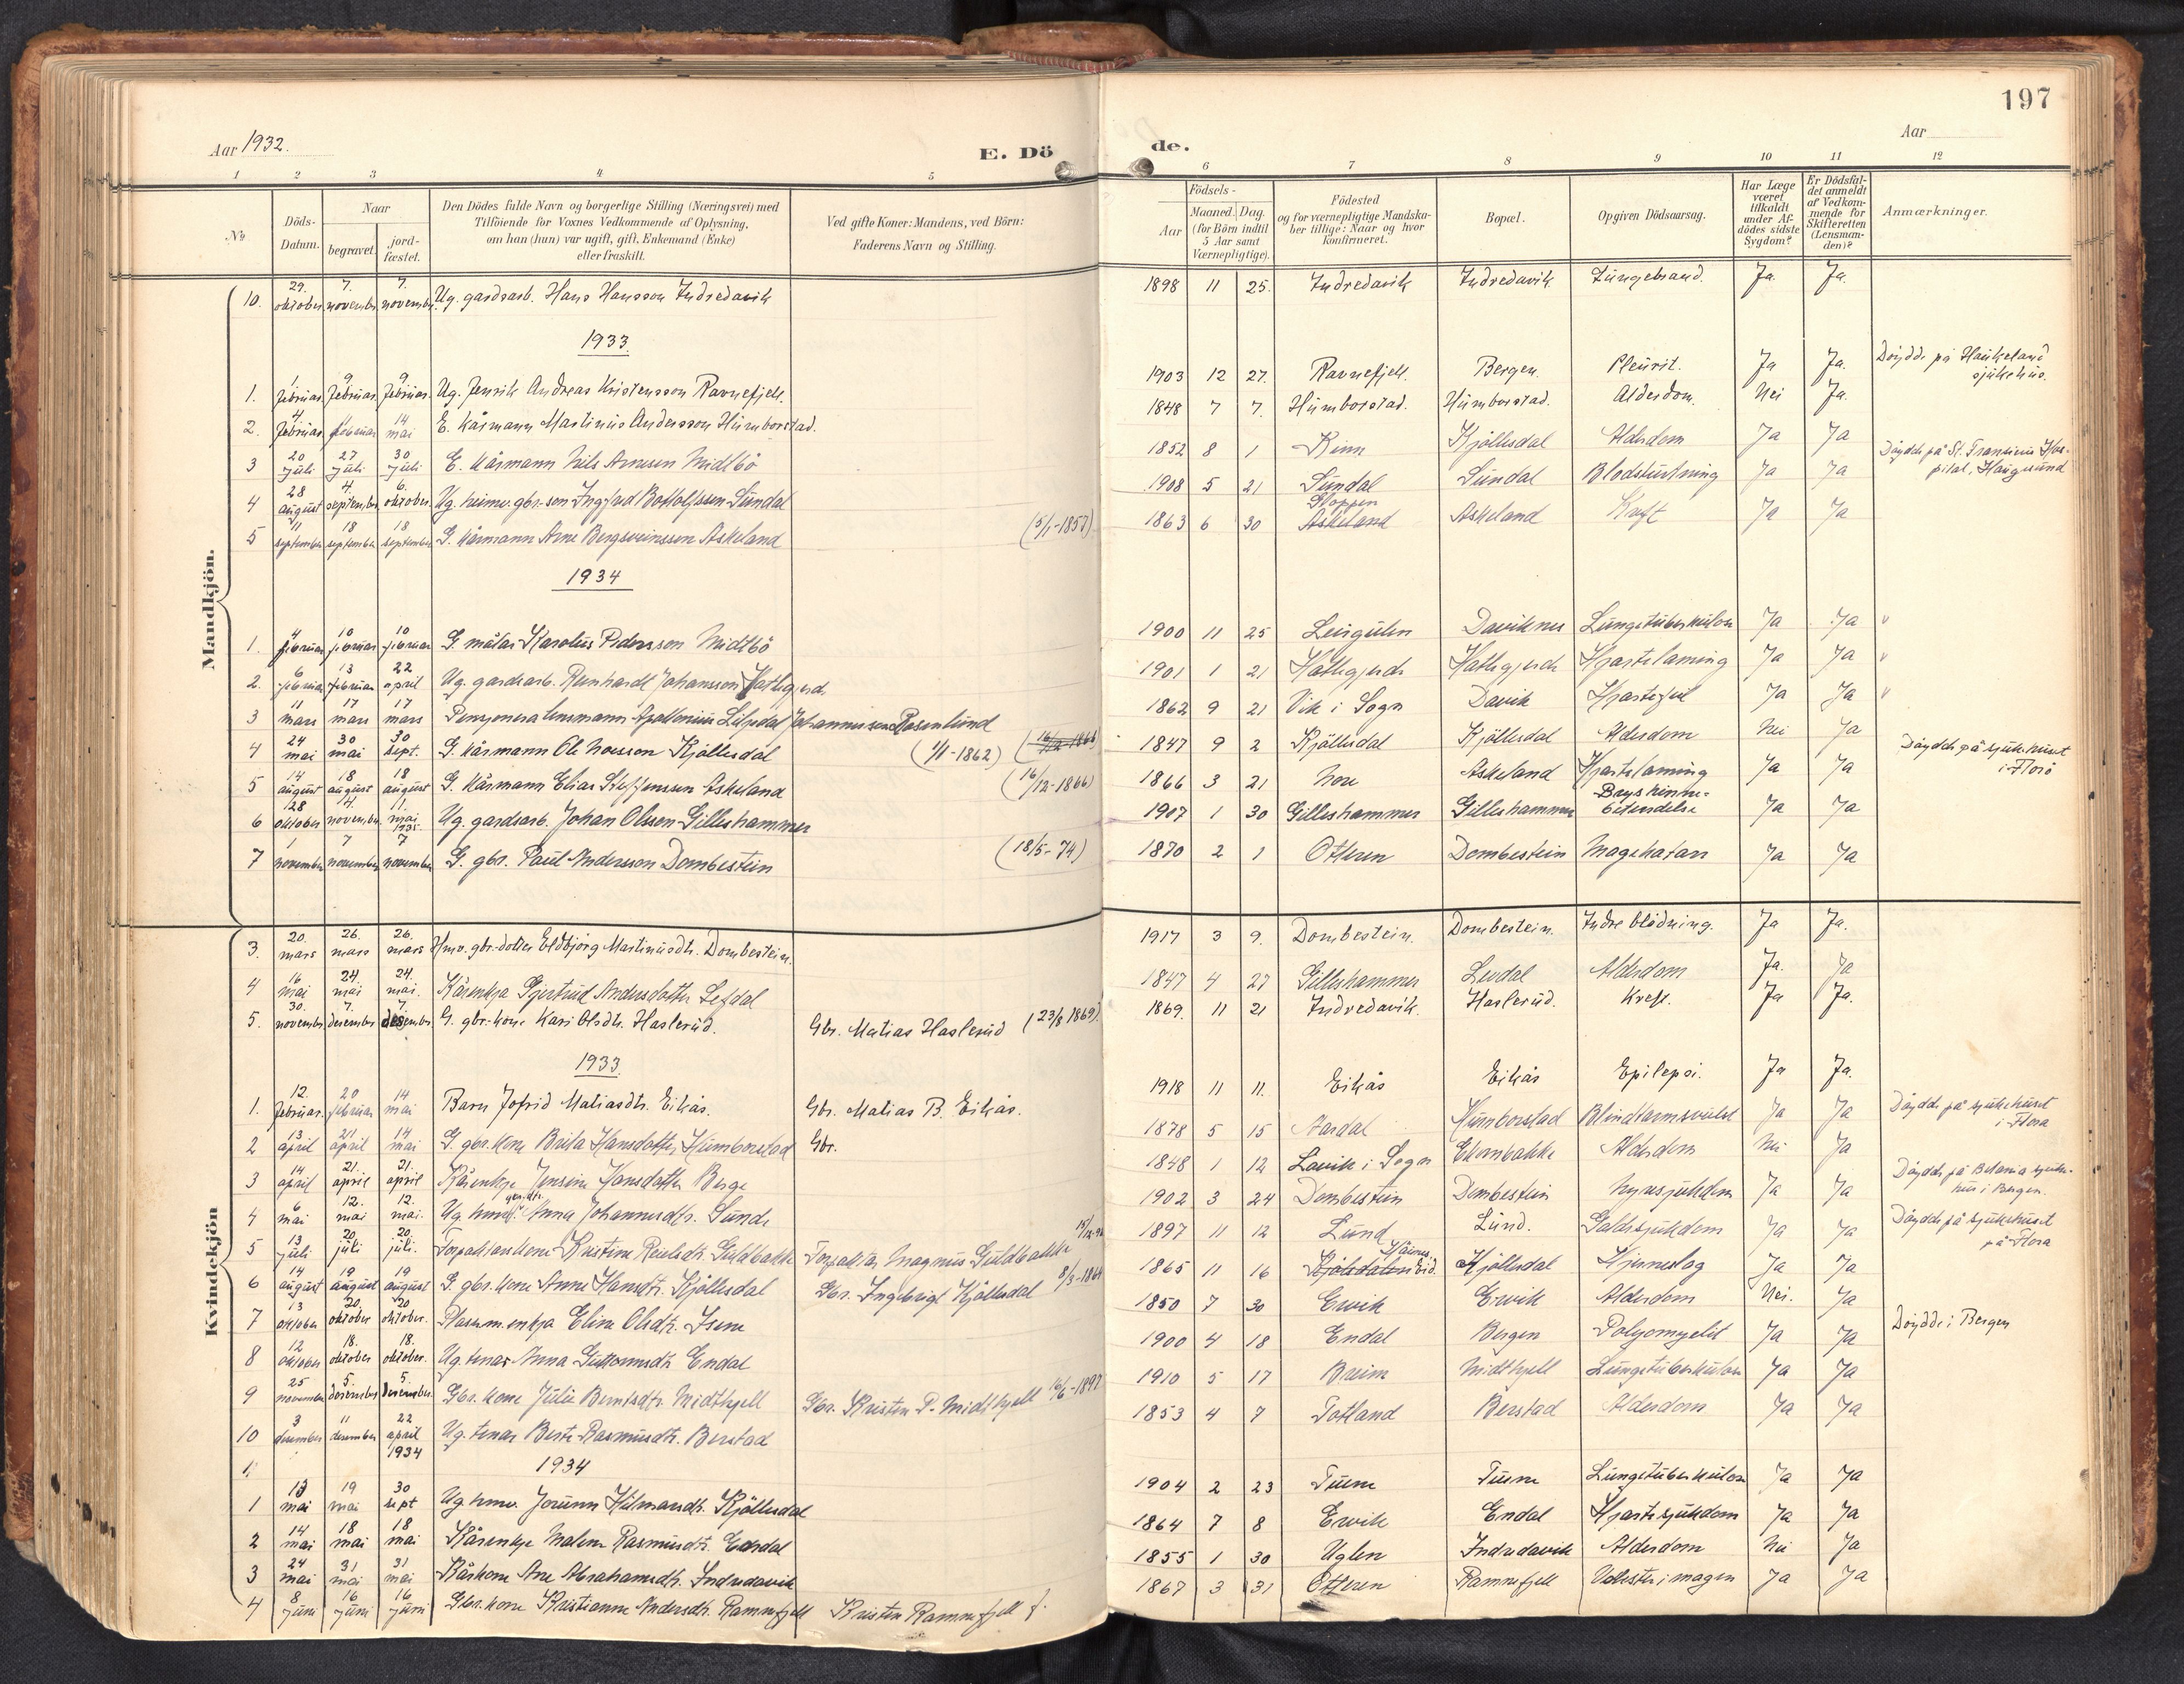 197
Aar 1932.
E. Dö de.
Aar
1 2 3 4 5 6 7 8 9 10 11 12
№
Döds-Datum.
Naar
begravet.
jord-fæstet.
Den Dödes fulde Navn og borgerlige Stilling (Næringsvei) med
Tilföiende for Voxnes Vedkommende af Oplysning,
om han (hun) var ugift, gift, Enkemand (Enke)
eller fraskilt.
Ved gifte Koner: Mandens, ved Börn:
Faderens Navn og Stilling.
Födsels-
Aar
Maaned. Dag.
(for Börn indtil
5 Aar samt
Værnepligtige).
Födested
og for værnepligtige Mandska-
ber tillige: Naar og hvor
konfirmeret.
Bopæl.
Opgiven Dödsaarsag.
Har Læge
været
tilkaldt
under Af-
dödes sidste
Sygdom?
Er Dödsfal-
det anmeldt
af Vedkom-
mende for
Skifteretten
(Lensman-
den)?
Anmærkninger.
Mandkjön.
10. 29. oktober 7. november 7. november Ug. gardsarb. Hans Hansson Indredavik 1898 11 25. Indredavik Indredavik Lungebrand. Ja. Ja.
1933.
1. 1 februar. 9 februar. 9 februar. Ug. Henrik Andreas Kristensson Ravnefjell. 1903 12 27. Ravnefjell. Bergen. Pleurit. Ja Ja. Döydde på Haukeland sjukehus.
2. 4. februar. februar 14 mai E. Kårmann Martinius Andersson Humborstad. 1848 7 7. Humborstad. Humborstad. Alderdom. Nei Ja.
3 20 juli 27 juli 30 juli E. Kårmann Nils Arnesen Midtbö 1852 8 1 Kinn Kjöllesdal Alderdom Ja Ja
4 28 august 4. september 6. oktober. Ug. heimev. gbr.-son Ingvard Bottolfssen Sundal 1908 5 21 Sundal Sundal Blodstyrtning Ja Ja Döydde på St. Fransiscus Hospital, Haugesund
5 11 september 18 september 18 september G. Kårmann Arne Bergsveinsson Askeland (5/1-1857) 1863 6 30 Gloppen Askeland Askeland Kreft Ja Ja
1934
1. 4 februar 10 februar 10 februar G. målar Karolus Pedersson Midtbö 1900 11 25 Leirgulen Daviknes Lungetuberkulose Ja Ja "
2. 6 februar 13 februar 22 april Ug. gardsarb. Reinhardt Johansson Hatlegjerde 1901 1 21 Hatlegjerde Hatlegjerde Hjartelaming Ja Ja "
3 11 mars 17 mars 17 mars Pensjonera lensmann Apollonius Lilsedal Johannesson Rosenlund 1862 9 21 Vik i Sogn Davik Hjartefeil Ja Ja "
4 24 mai 30 mai 30 sept. G. Kårmann Ole Mosson Kjöllesdal (1/1-1862) (16/12-1866) 1847 9 2 Kjöllesdal Kjöllesdal Alderdom Nei Ja
5 14 august 18 august 18 august G. Kårmann Elias Steffensson Askeland (16/12-1866) 1866 3 21 Nore Askeland Hjartelaming Ja Ja Döydde på sjukehuset i Florö
6 28 oktober 4. november 11. mai 1935 Ug. gardsarb. Johan Olsson Gilleshammer 1907 1 30 Gilleshammer Gilleshammer Brysthinne-betendelse Ja Ja
7 1 november 7 november 7 november G. gbr. Paul Andersson Dombestein (18/5-74) 1870 2 1 Otteren Dombestein Magekatarr Ja Ja
Kvindekjön
3. 20. mars 26. mars 26. mars Hmv. gbr.-dotter Eldbjörg Martinusdtr. Dombestein. 1917 3 9. Dombestein. Dombestein. Indre blödning. Ja Ja.
4 16 mai 24. mai 24. mai. Kårenkja Gjertrud Andersdotter Lefdal 1847 4 27 Gilleshammer Levdal Alderdom Ja. Ja
5. 30. november 7. desember 7. desember G. gbr.-kone Kari Olsdtr. Haslerud. Gbr. Matias Haslerud (23/8 1869). 1869. 11 21 Indredavik. Haslerud. Kreft. Ja Ja.
1933.
1. 12. februar. 20 februar 14 mai Barn Jofrid Matiasdtr. Eikås. Gbr. Matias B. Eikås. 1918 11 11. Eikås Eikås Epilepsi. Ja Ja.
2 13 april 21 april 14 mai G. gbr. kone Brita Hansdotter Humborstad Gbr. 1878 5 15 Aardal Humborstad Blindtarmsvulst Ja Ja Döydde på sjukehuset i Flora
3 14 april 21. april 21. april Kårenkje Jensine Hansdotter Berge 1848 1 12 Lavik i Sogn Alderdom Nei Ja
4 6 mai 12. mai 12. mai. Ug. hmv. gbr.dtr. Anna Johannesdtr. Sunde 1902 3 24 Dombestein Dombestein Nyresjukdom Ja Ja Döydde på Betania sjukehus i Bergen.
5 13 juli 20 juli 20. juli. Forpaktarkone Kristine Guldbakke Forpaktar Magnus Guldbakke 1897 11 12 Lund Lund. Galdesjukdom Ja Ja Döydde på sjukehuset på Flora
6 14 august 19 august 19 august G. gbr. kone Anne Hansdtr. Kjöllesdal Gbr. Ingebrigt Kjöllesdal 8/3-1864 1865 11 16 Kjölsdalen Eid. Kjöllesdal Hjerneslag Ja Ja
7 13 oktober 20. oktober 20 oktober. Plassm.enkja Eline Olsdtr. Isene 1850 7 30 Ervik Ervik Alderdom Nei. Ja
8 12 oktober 18. oktober 18. oktober. Ug. tenar Anna Guttormsdtr. Endal 1900 4 18 Endal Bergen Polyomyelit Ja Ja Döydde i Bergen
9 25 november 5. desember 5. desember. Gbr. kone Julie Berntsdtr. Midthjell Gbr. Kristen P. Midthjell 16/6-1897 1910 5 17 Breim Midthjell Lungetuberkulose Ja Ja
10 3 desember 11 desember 22 april 1934 Ug. tenar Berte Rasmusdtr. Berstad 1853 4 7 Totland Berstad Alderdom Ja Ja
1934
1 13 mai 19 mai 30 sept Ug. hmv. Jorunn Hilmarsdtr. Kjöllesdal 1904 2 23 Tuene Tuene Lungetuberkulose Ja Ja
2 14 mai 18 mai 18 mai Kårenkje Malene Rasmusdtr. Endal 1864 7 8 Ervik Endal Hjartesjukdom Ja Ja
3 24 mai 31 mai 31 mai Kårkone Ane Abrahamsdtr. Indredavik 1855 1 30 Uglen Indredavik Alderdom Nei Ja
4 8 juni 16 juni 16 juni Gbr. kone Kristianne Andersdtr. Ramnefjell Kristen Ramnefjell f. 1867 3 31 Otteren Ramnefjell i magen Ja Ja